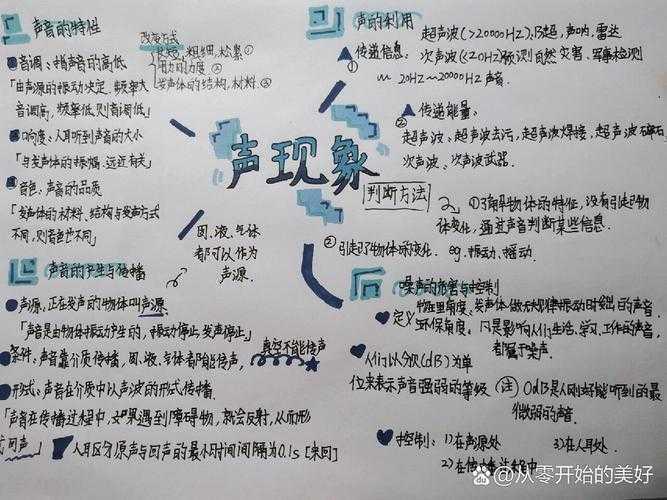 声音的特性
改变方式
长短、粗细、松紧①
用力的力度②
发声体的结构、材料③
音调:指声音的高低
「由声源的振动决定,频率大
音调高,频率低,则音调低」
响度:人耳听到声音的大小
「与发声体的振幅、远近有关」
音色:声音的品质
「发声体的材料、结构与发声方式
不同,则音色也不同」
声的利用
①传递信息:
超声波(>20000HZ):B超,声呐,雷达
次声波(<20HZ)预测自然灾害、军事检测
20HZ~20000HZ声音.
②传递能量:
超声波、超声波去污,超声波焊接,超声波碎石
次声波、次声波武器.
声现象
判断方法
①了解物体的特征,没有引起物
体变化,通过声音判断某些信息.
②引起了物体的变化. eg.振动、摇动.
固、液、气体
都可以作为
声源.
声音的产生与传播
声源:正在发声的物体叫声源.
「声音是由物体振动产生的,振动停止,发声停止」
条件:声音靠介质传播,固、液、气体都能传声,
真空不能传声
形式:声音在介质中以声波的形式传播.
「声音在传播过程中,如果遇到障碍物,就会反射,从而形
式回声」
人耳区分原声与回声的最小时间间隔为0.1s[来回]
噪声的危害与控制
定义
物理角度:发声体做无规律振动时发出的声音.
环保角度:凡是影响人们生活、学习、工作的声音,
都属于噪声.
人们以分贝(dB)为单
位来表示声音强弱的等级
注 0dB是人刚好能听到的最
微弱的声音.
控制:1)在声源处
3)在人耳处.
2)在传播过程中
@从零开始的美好